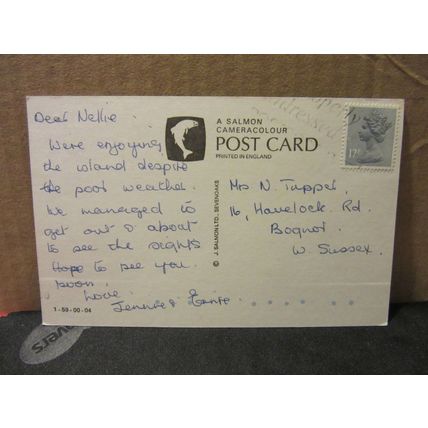 Dear Nellie
Were enjoying
the island despite
the poor weather.
We managed to
get out & about
to see the sights
Hope to see you
soon.
Love
Jennie &
1-59-00-04
A SALMON
CAMERACOLOUR
POST CARD
PRINTED IN ENGLAND
© J. SALMON LTD., SEVENOAKS
Mrs N. Tupper,
16, Havelock Rd.
Bognor.
W. Sussex.
properly
addressed